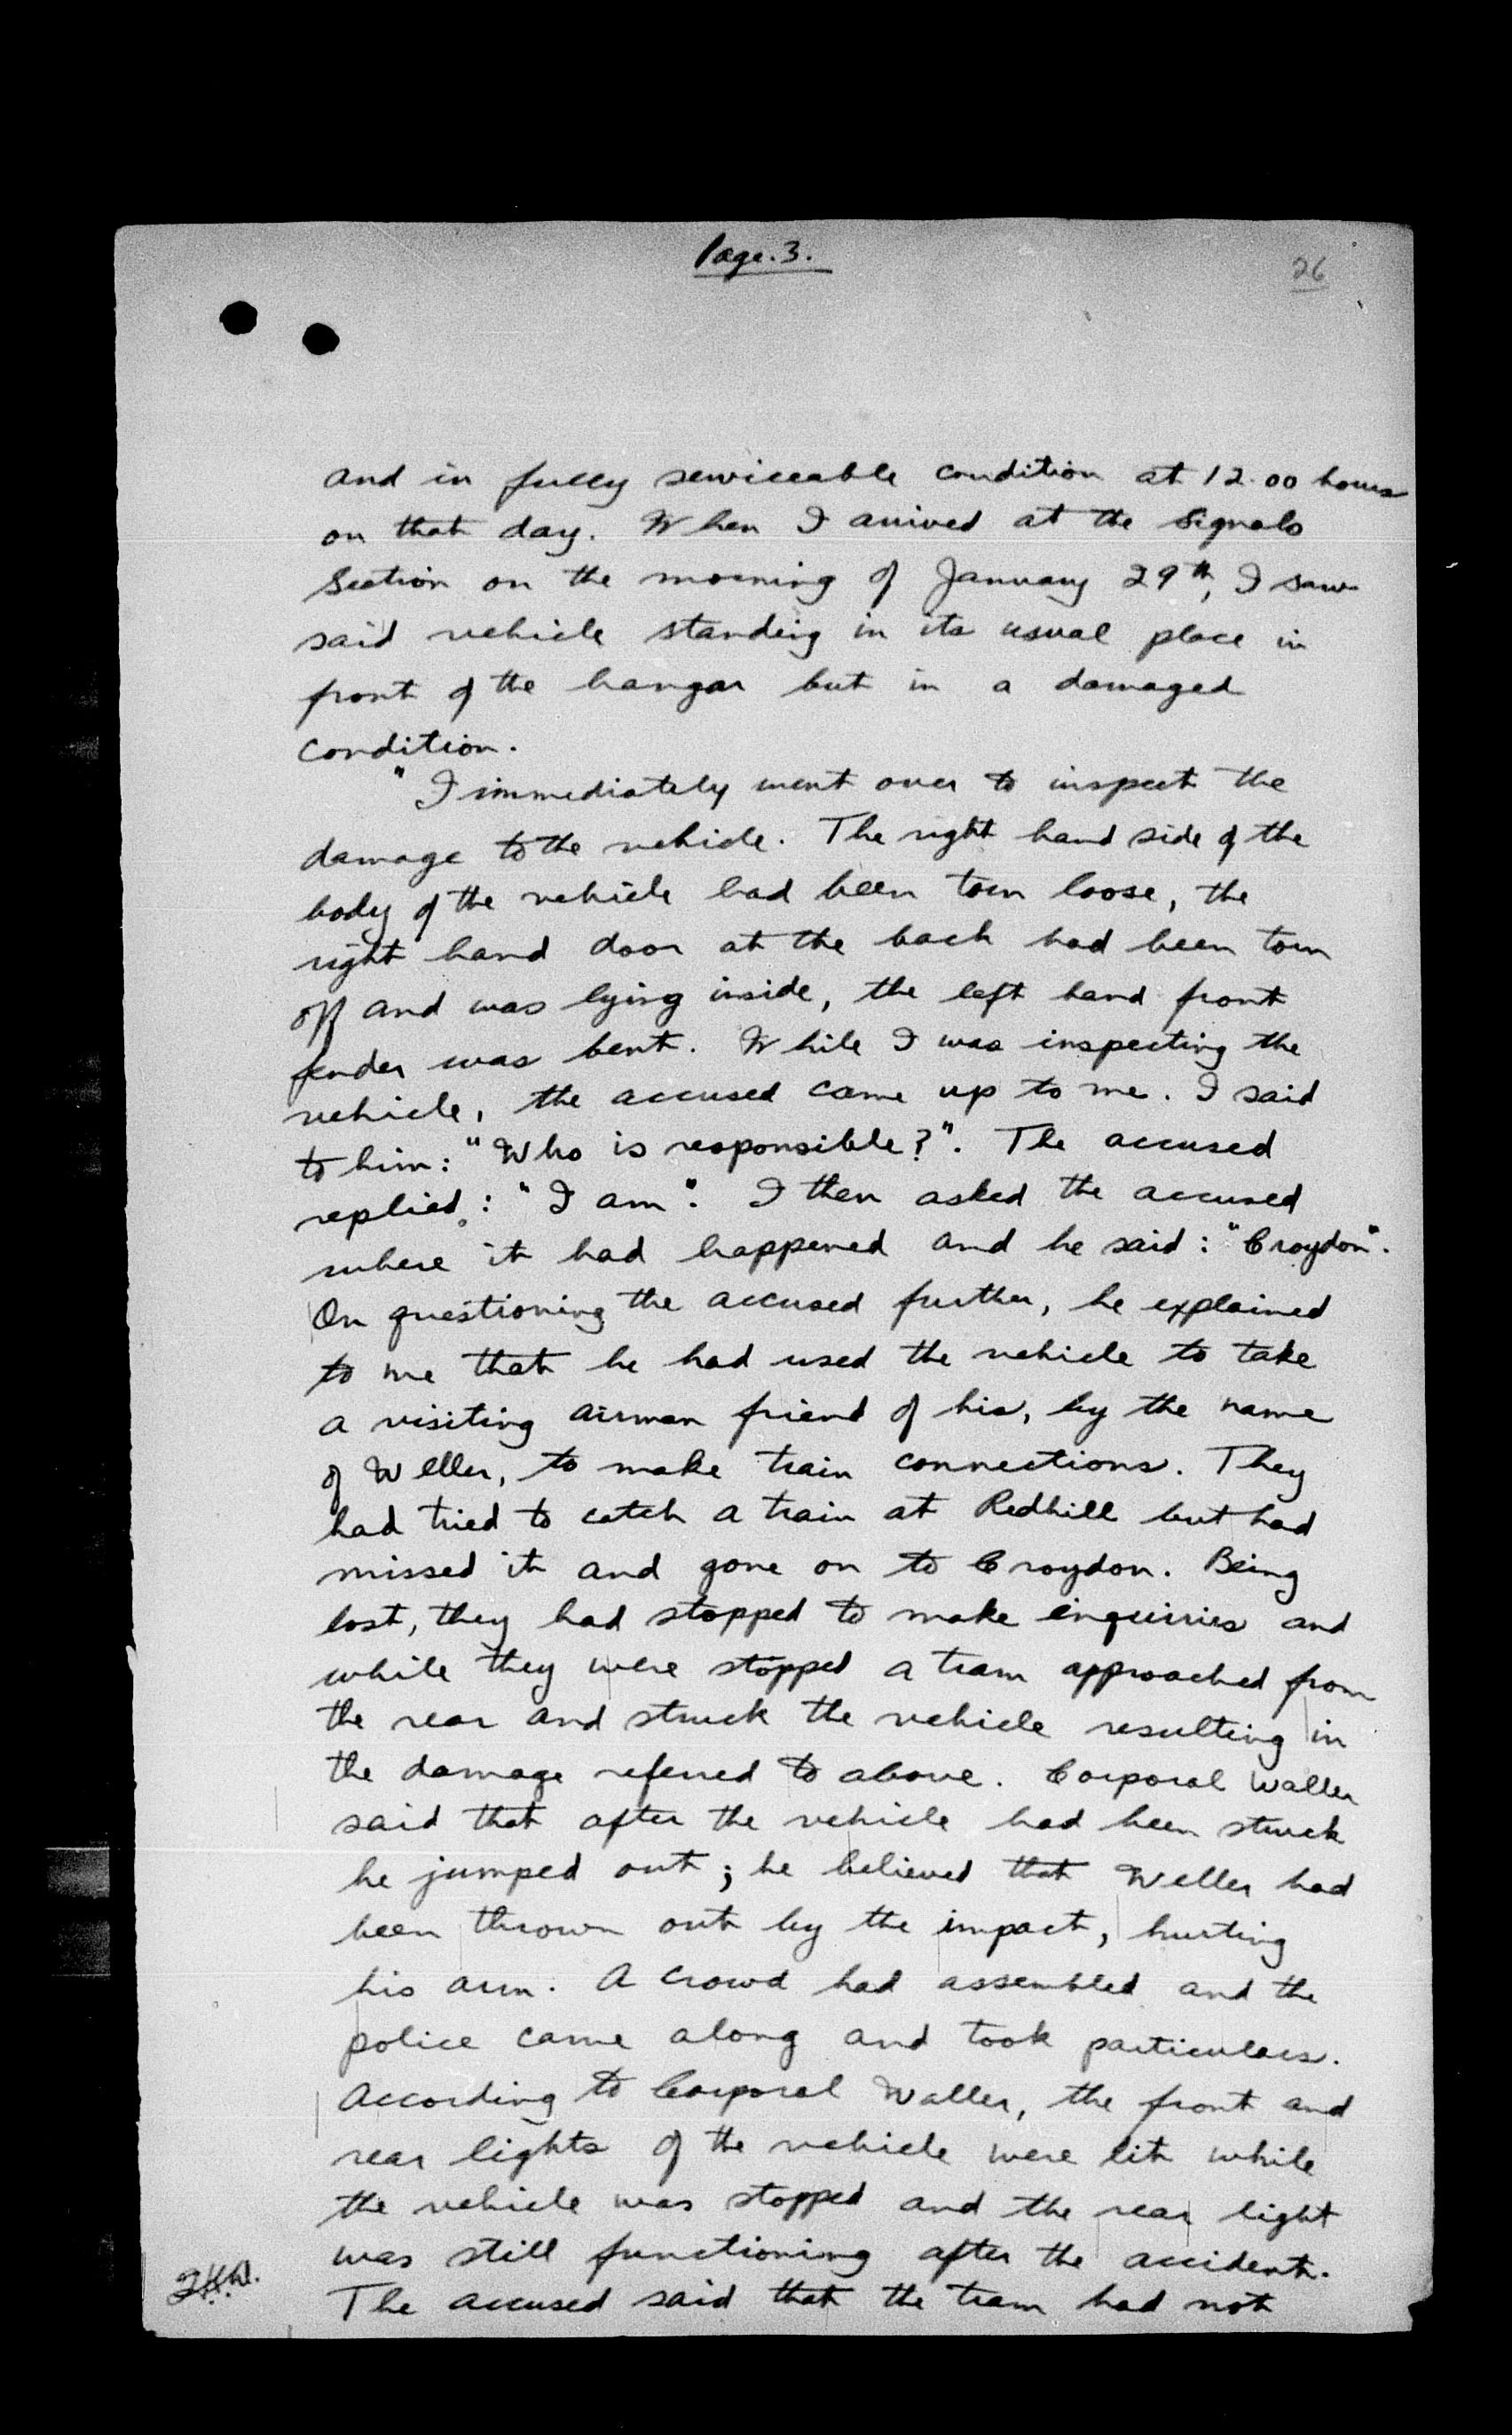 Page. 3.
26
and in fully serviceable condition at 12.00 hours
on that day. When I arrived at the Signals
Section on the morning of January 29th, I saw
said vehicle standing in its usual place in
front of the hangar but in a damaged
condition.
"I immediately went over to inspect the
damage to the vehicle. The right hand side of the
body of the vehicle had been torn loose, the
right hand door at the back had been torn
off and was lying inside, the left hand front
fender was bent. While I was inspecting the
vehicle, the accused came up to me. I said
to him: "Who is responsible?". The accused
replied: "I am". I then asked the accused
where it had happened and he said: "Croydon".
On questioning the accused further, he explained
to me that he had used the vehicle to take
a visiting airman friend of his, by the name
of Weller, to make train connections. They
had tried to catch a train at Redhill but had
missed it and gone on to Croydon. Being
lost, they had stopped to make enquiries and
while they were stopped a tram approached from
the rear and struck the vehicle resulting in
the damage referred to above. Corporal Waller
said that after the vehicle had been struck
he jumped out; he believed that Weller had
been thrown out by the impact, hurting
his arm. A crowd had assembled and the
police came along and took particulars.
According to Corporal Waller, the front and
rear lights of the vehicle were lit while
the vehicle was stopped and the rear light
was still functioning after the accident.
The accused said that the tram had not